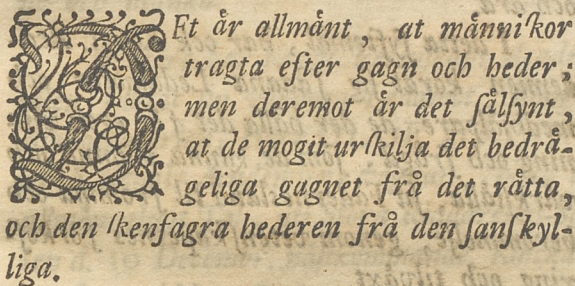 DEt är allmänt, at männiſkor
tragta efter gagn och heder;
men deremot är det ſälſynt,
at de mogit urſkilja det bedrä-
geliga gagnet frå det rätta,
och den ſkenfagra hederen frå den ſanſkyl-
liga.